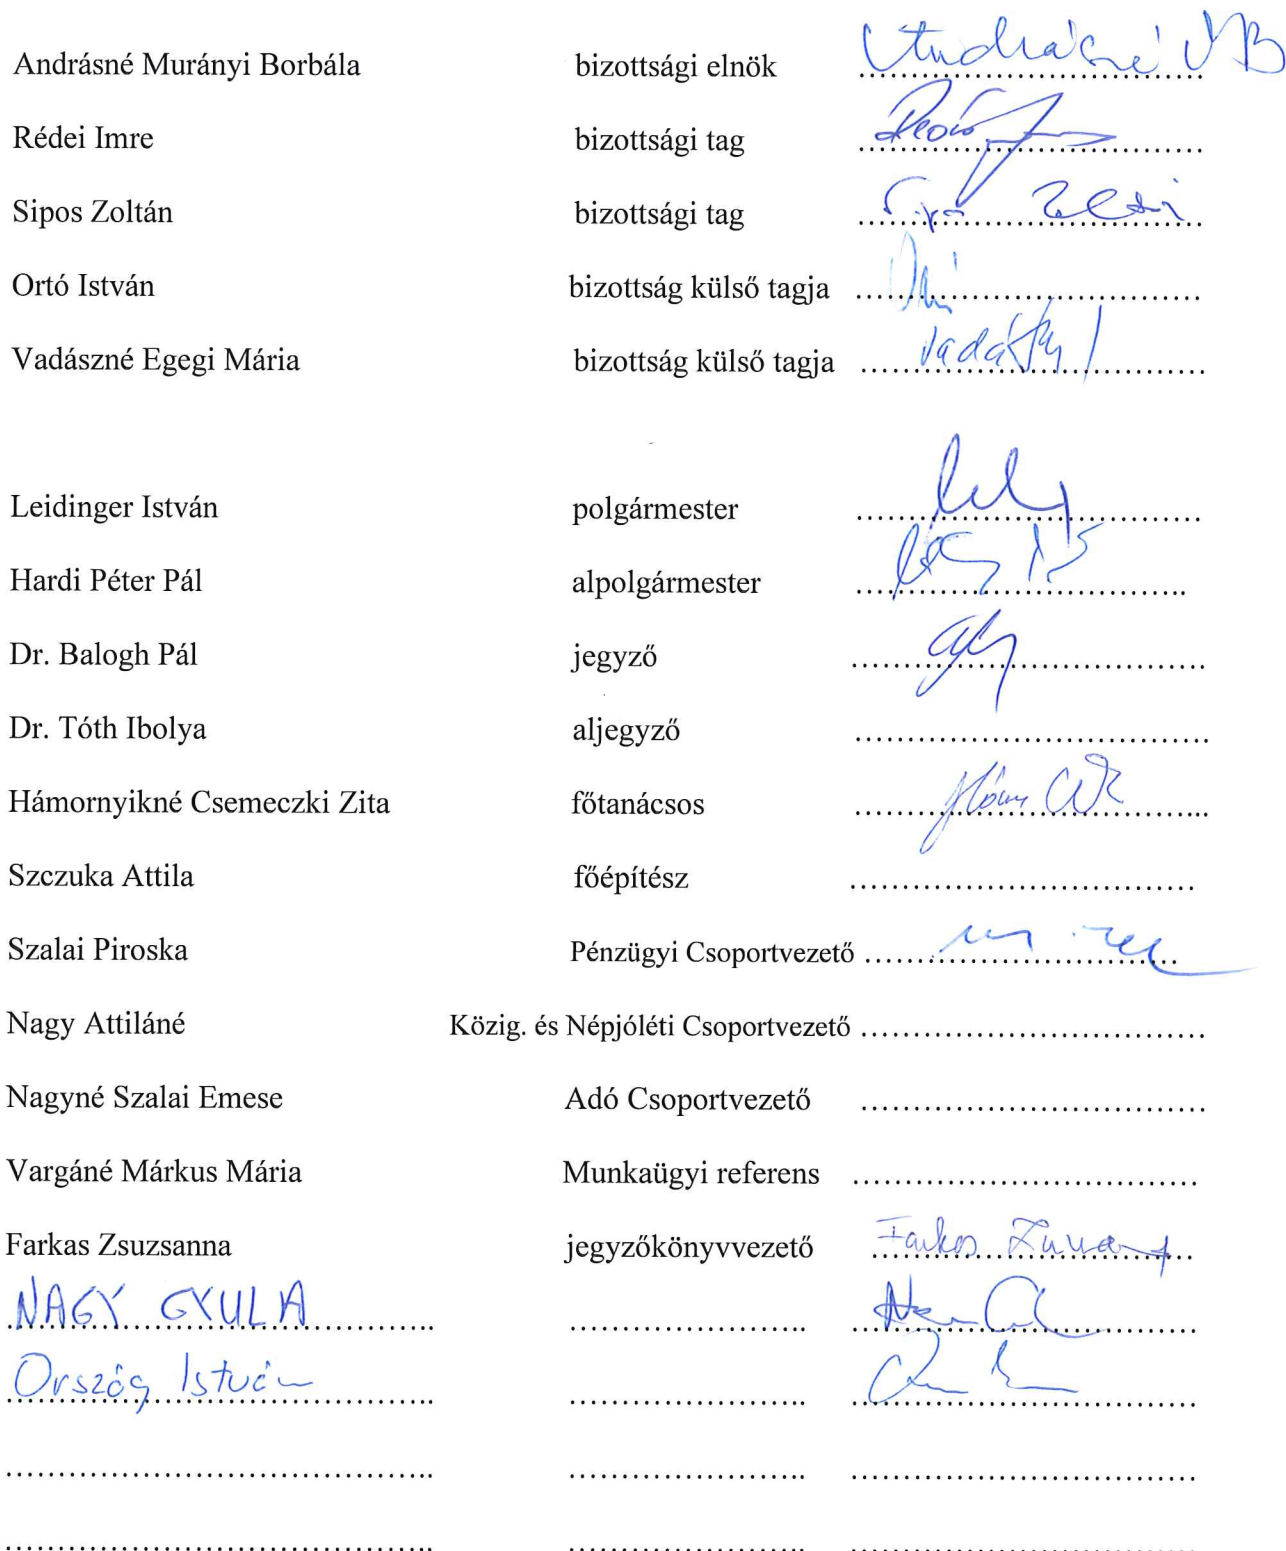 Andrásné Murányi Borbála bizottsági elnök Andrásné MB
Rédei Imre bizottsági tag ....................................
Sipos Zoltán bizottsági tag ....................................
Ortó István bizottság külső tagja ....................................
Vadászné Egegi Mária bizottság külső tagja ....................................
Leidinger István polgármester ....................................
Hardi Péter Pál alpolgármester ....................................
Dr. Balogh Pál jegyző ....................................
Dr. Tóth Ibolya aljegyző ....................................
Hámornyikné Csemeczki Zita főtanácsos ....................................
Szczuka Attila főépítész ....................................
Szalai Piroska Pénzügyi Csoportvezető ....................................
Nagy Attiláné Közig. és Népjóléti Csoportvezető ....................................
Nagyné Szalai Emese Adó Csoportvezető ....................................
Vargáné Márkus Mária Munkaügyi referens ....................................
Farkas Zsuzsanna jegyzőkönyvvezető Farkas
NAGY GYULA
Ország István